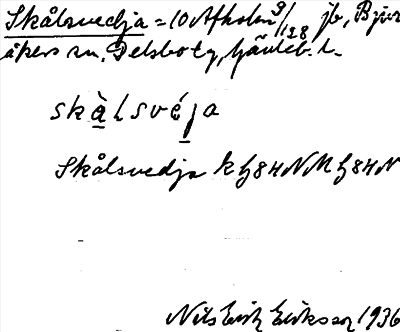 Skålsvedja = 10 Afholm 9/128 jb, Bjur
åkers sn, Delsbo tg, Gävleb. l.
skàlsvéja
Skålsvedja k G84N M G84N
Nils Erik Eriksson 1936